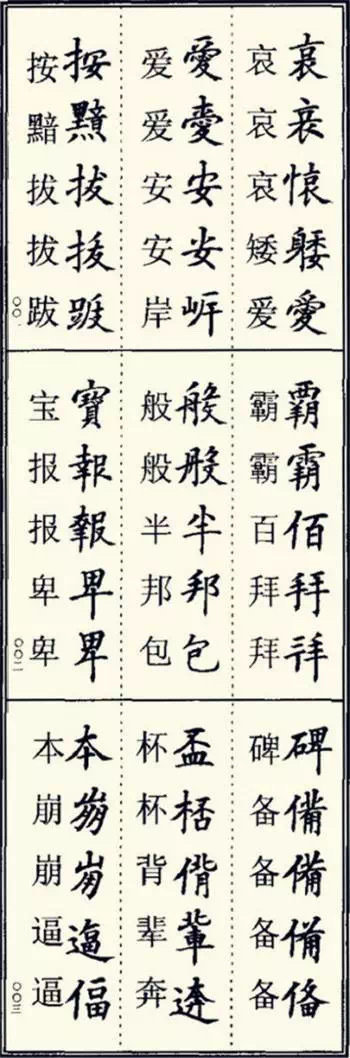 哀愛
哀哀哀矮爱
愛安安
爱爱安安岸
按拔
按黯拔拔跋
〇〇一
覇霸佰拜
霸霸百拜拜
般般半邦包
般般半邦包
寶報報卑卑
宝报报卑卑
〇〇二
碑備備備俻
碑备备备备
盃桮偝輩逩
杯杯背辈奔
本逼偪
本崩崩逼逼
〇〇三